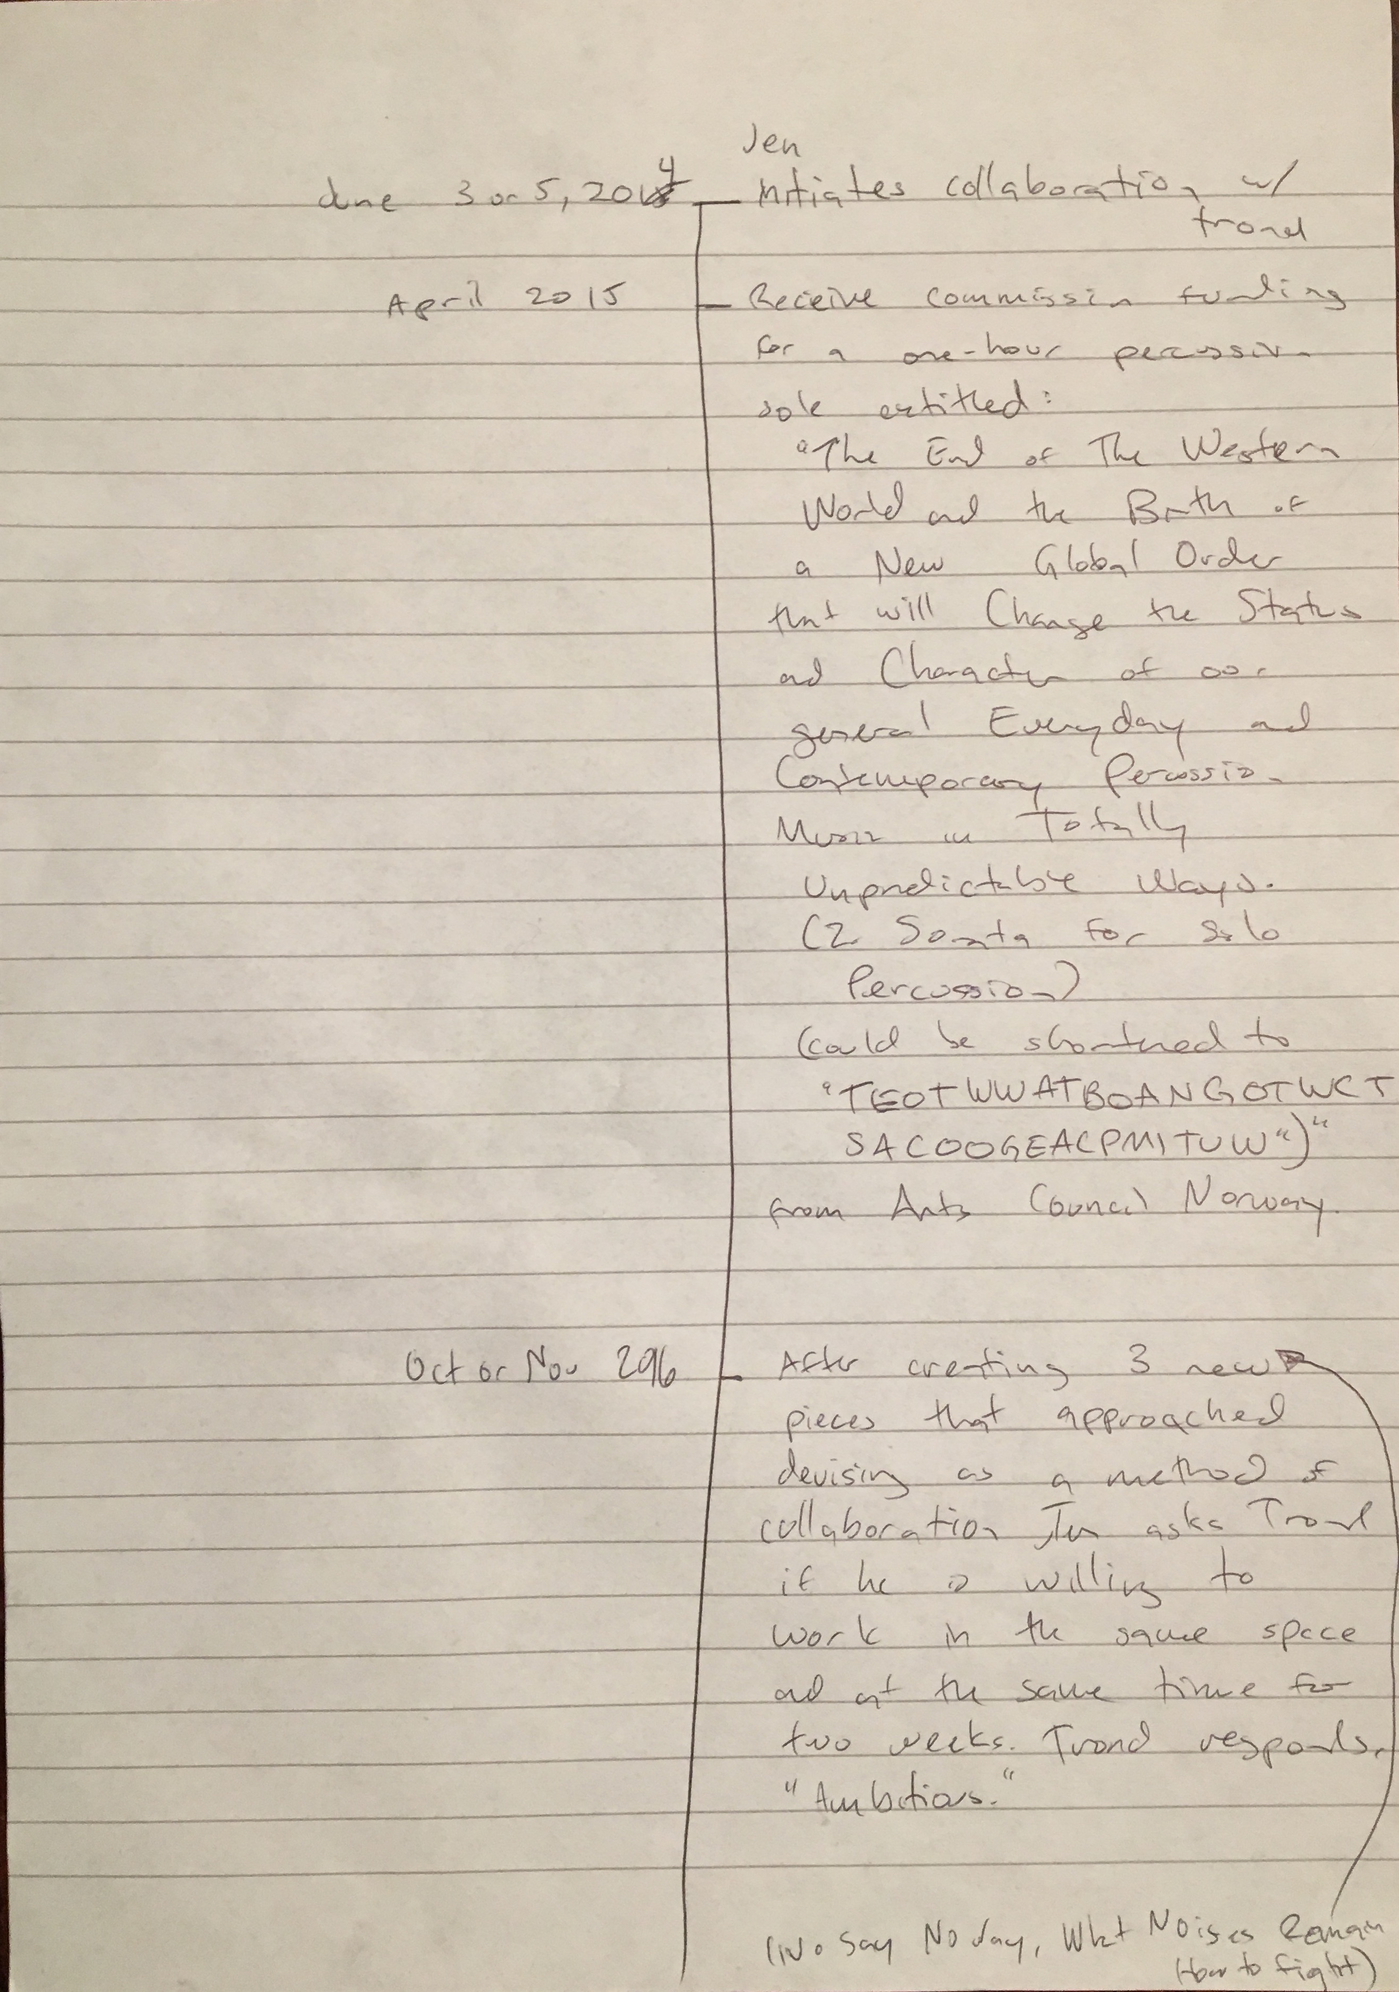 Jen
June 3 or 5, 2014 initiates collaboration w/
trond
April 2015 Receive commission funding
for a one-hour percussion
solo entitled:
"The End of The Western
World and the Birth of
a New Global Order
that will Change the Status
and Character of our
general Everyday and
Contemporary Percussion
Music in Totally
Unpredictable Ways.
(2. Sonata for Solo
Percussion)
(could be shortened to
"TEOTWWATBOANGOTWCT
SACOOGEACPMITUW")"
from Arts Council Norway.
Oct or Nov 2016 After creating 3 new
pieces that approached
devising as a method of
collaboration Jen asks Trond
if he is willing to
work in the same space
and at the same time for
two weeks. Trond responds,
"Ambitious."
(No Say No Way, What Noises Remain
How to fight)